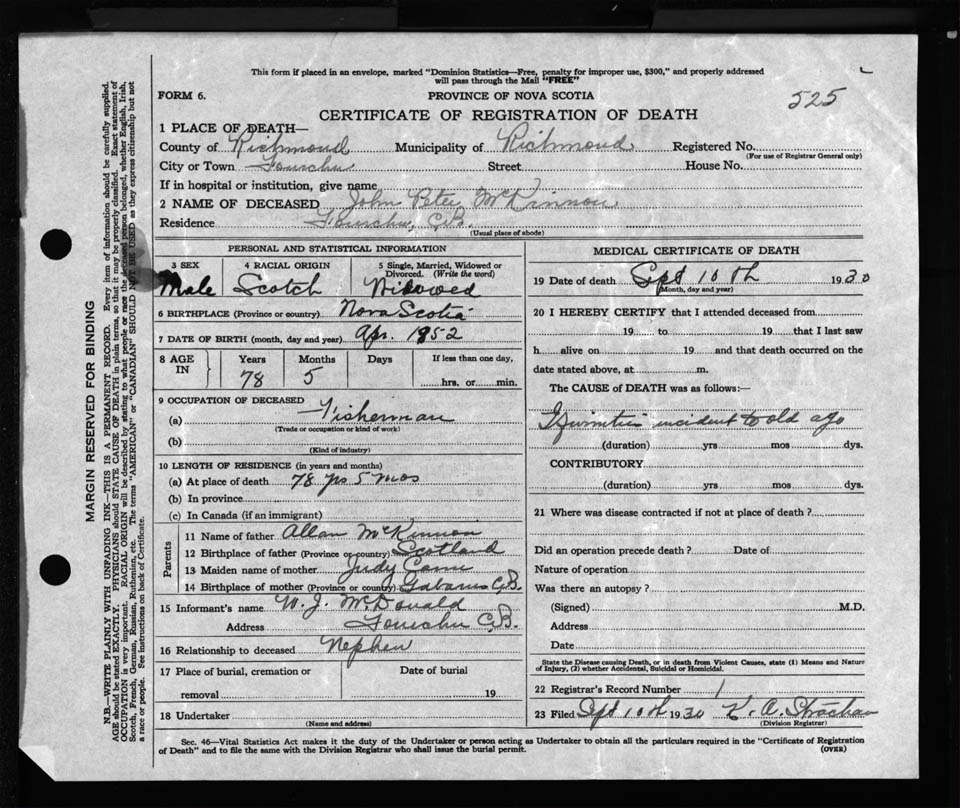 This form if placed in an envelope, marked "Dominion Statistics—Free, penalty for improper use, $300," and properly addressed
will pass through the Mail "FREE"
FORM 6.
PROVINCE OF NOVA SCOTIA
525
CERTIFICATE OF REGISTRATION OF DEATH
1 PLACE OF DEATH—
County of Richmond Municipality of Richmond Registered No.
(For use of Registrar General only)
City or Town Fourchu Street House No.
If in hospital or institution, give name
2 NAME OF DECEASED John Peter McKinnon
Residence Fourchu, C.B.
(Usual place of abode)
PERSONAL AND STATISTICAL INFORMATION
3 SEX 4 RACIAL ORIGIN 5 Single, Married, Widowed or Divorced. (Write the word)
Male Scotch Widowed
6 BIRTHPLACE (Province or country) Nova Scotia
7 DATE OF BIRTH (month, day and year) Apr. 1852
8 AGE IN Years Months Days If less than one day,
78 5 hrs. or min.
9 OCCUPATION OF DECEASED
(a) Fisherman
(Trade or occupation or kind of work)
(b)
(Kind of industry)
10 LENGTH OF RESIDENCE (in years and months)
(a) At place of death 78 yrs 5 mos
(b) In province
(c) In Canada (if an immigrant)
Parents
11 Name of father Allan McKinnon
12 Birthplace of father (Province or country) Scotland
13 Maiden name of mother Judy
14 Birthplace of mother (Province or country) Gabarus C.B.
15 Informant's name W. J. McDonald
Address Fourchu C.B.
16 Relationship to deceased Nephew
17 Place of burial, cremation or removal Date of burial 19
18 Undertaker
(Name and address)
MEDICAL CERTIFICATE OF DEATH
19 Date of death Sept 10th 1930
(Month, day and year)
20 I HEREBY CERTIFY that I attended deceased from
19 to 19 that I last saw
h alive on 19 and that death occurred on the
date stated above, at m.
The CAUSE of DEATH was as follows:—
incident to old age
(duration) yrs mos dys.
CONTRIBUTORY
(duration) yrs mos dys.
21 Where was disease contracted if not at place of death?
Did an operation precede death? Date of
Nature of operation
Was there an autopsy?
(Signed) M.D.
Address
Date
State the Disease causing Death, or in death from Violent Causes, state (1) Means and Nature
of Injury, (2) whether Accidental, Suicidal or Homicidal.
22 Registrar's Record Number 1
23 Filed Sept 10th 1930 K. A. Strachan
(Division Registrar)
Sec. 46—Vital Statistics Act makes it the duty of the Undertaker or person acting as Undertaker to obtain all the particulars required in the "Certificate of Registration
of Death" and to file the same with the Division Registrar who shall issue the burial permit.
(OVER)
MARGIN RESERVED FOR BINDING
N.B.—WRITE PLAINLY WITH UNFADING INK—THIS IS A PERMANENT RECORD. Every item of information should be carefully supplied.
AGE should be stated EXACTLY. PHYSICIANS should STATE CAUSE OF DEATH in plain terms, so that it may be properly classified. Exact statement of
OCCUPATION is very important. RACIAL ORIGIN will be described by stating to what people or race the deceased person belonged, whether English, Irish,
Scotch, French, German, Russian, Ruthenian, etc. The terms "AMERICAN" or "CANADIAN" SHOULD NOT BE USED as they express citizenship but not
a race or people. See instructions on back of Certificate.